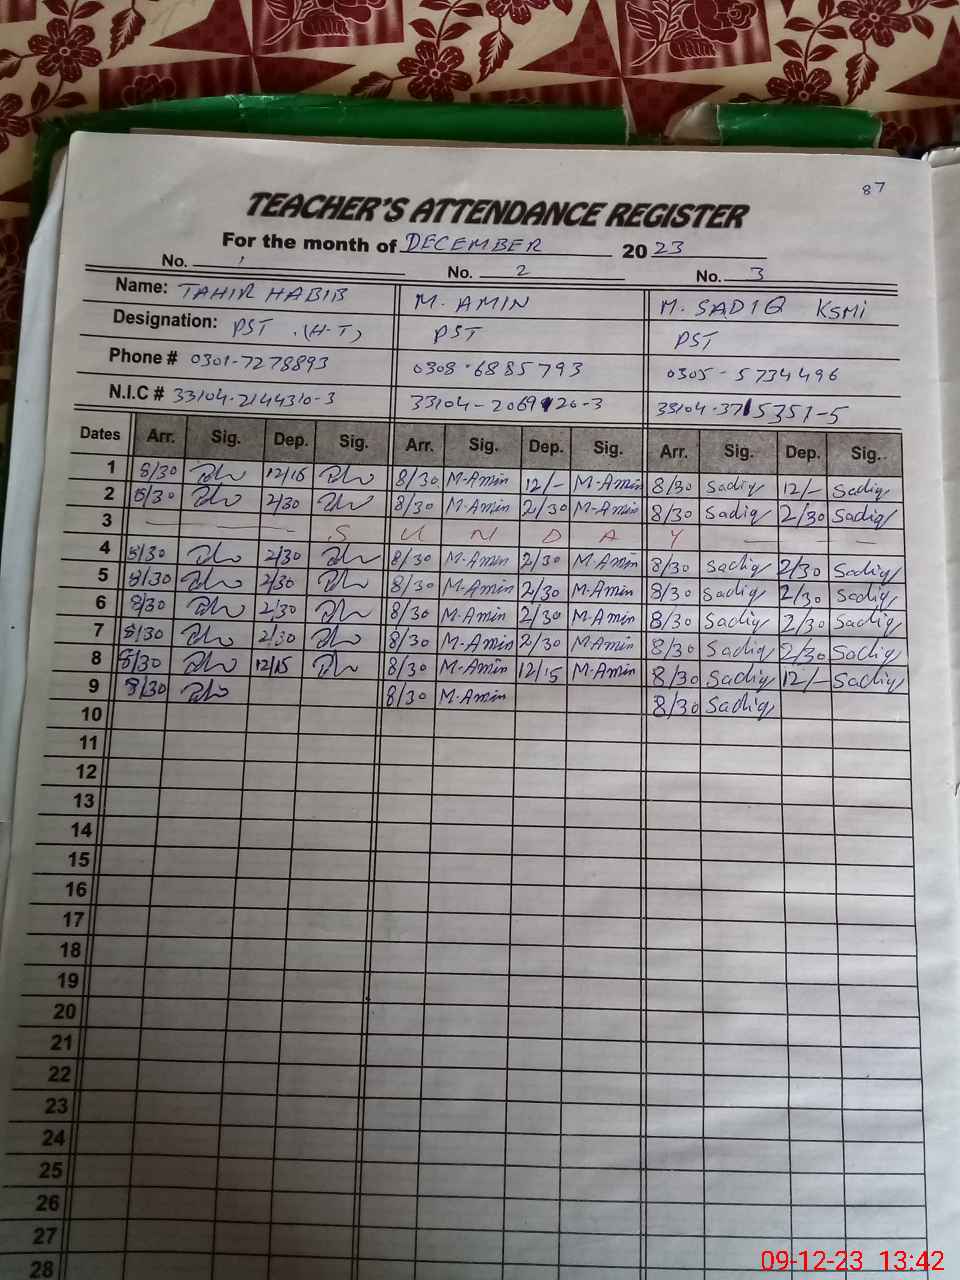 87
TEACHER'S ATTENDANCE REGISTER
For the month of DECEMBER 2023
No. 1 No. 2 No. 3
Name: TAHIR HABIB M. AMIN M. SADIQ KSMI
Designation: PST (H-T) PST PST
Phone # 0301-7278893 0308-6885793 0305-5734496
N.I.C # 33104-2144310-3 33104-2069120-3 33104-3715351-5
Dates Arr. Sig. Dep. Sig. Arr. Sig. Dep. Sig. Arr. Sig. Dep. Sig.
1 8/30 12/15 8/30 M-Amin 12/- M-Amin 8/30 Sadiq 12/- Sadiq
2 8/30 2/30 8/30 M-Amin 2/30 M-Amin 8/30 Sadiq 2/30 Sadiq
3 S U N D A Y
4 8/30 2/30 8/30 M-Amin 2/30 M-Amin 8/30 Sadiq 2/30 Sadiq
5 8/30 2/30 8/30 M-Amin 2/30 M-Amin 8/30 Sadiq 2/30 Sadiq
6 8/30 2/30 8/30 M-Amin 2/30 M-Amin 8/30 Sadiq 2/30 Sadiq
7 8/30 2/30 8/30 M-Amin 2/30 M-Amin 8/30 Sadiq 2/30 Sadiq
8 8/30 12/15 8/30 M-Amin 12/15 M-Amin 8/30 Sadiq 12/- Sadiq
9 8/30 8/30 M-Amin 8/30 Sadiq
10
11
12
13
14
15
16
17
18
19
20
21
22
23
24
25
26
27
28
09-12-23 13:42